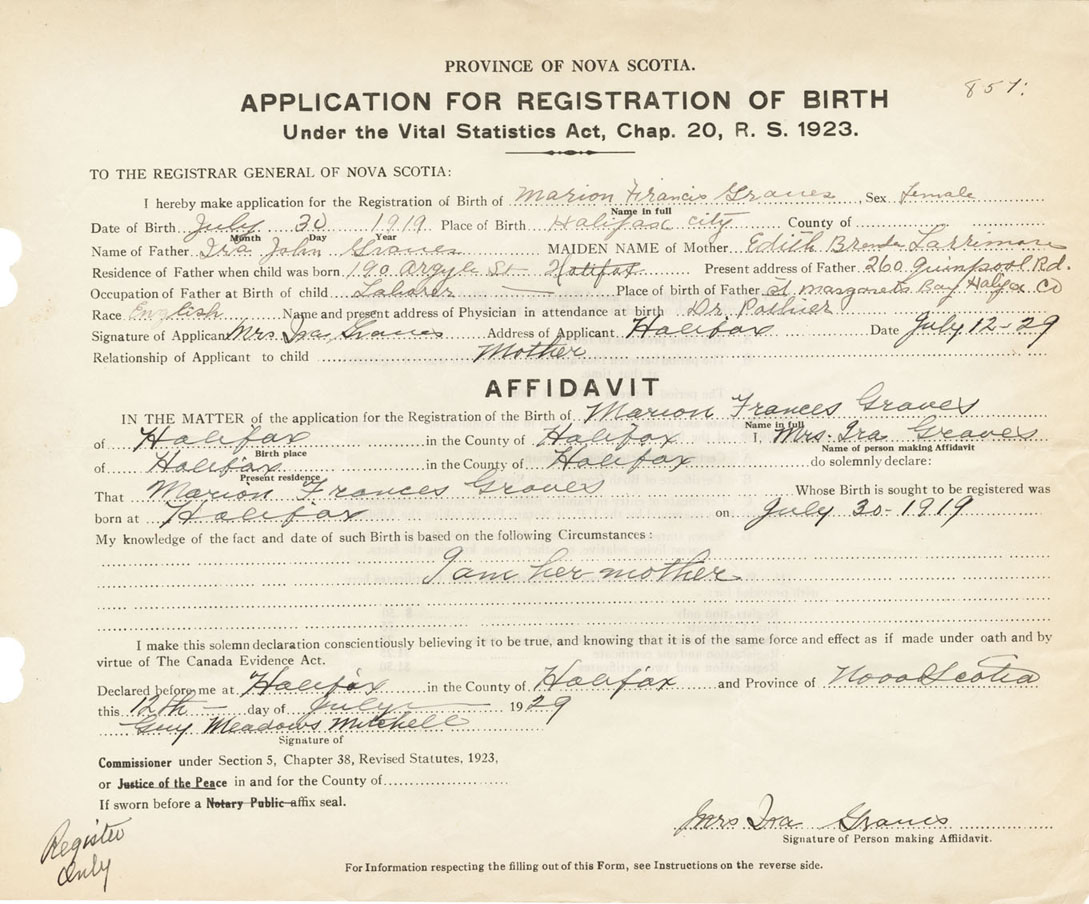 PROVINCE OF NOVA SCOTIA.
857:
APPLICATION FOR REGISTRATION OF BIRTH
Under the Vital Statistics Act, Chap. 20, R. S. 1923.
TO THE REGISTRAR GENERAL OF NOVA SCOTIA:
I hereby make application for the Registration of Birth of Marion Francis Graves Sex Female
Name in full
Date of Birth July 30 1919 Place of Birth Halifax city County of
Month Day Year
Name of Father Ira John Graves MAIDEN NAME of Mother Edith Brenda
Residence of Father when child was born 190 Argyle St Halifax Present address of Father 260 Quinpool Rd.
Occupation of Father at Birth of child Laborer Place of birth of Father St Margarets Bay Halifax Co
Race English Name and present address of Physician in attendance at birth Dr.
Signature of Applicant Mrs Ira Graves Address of Applicant Halifax Date July 12-29
Relationship of Applicant to child Mother
AFFIDAVIT
IN THE MATTER of the application for the Registration of the Birth of Marion Frances Graves
Name in full
of Halifax in the County of Halifax I, Mrs. Ira Graves
Birth place Name of person making Affidavit
of Halifax in the County of Halifax do solemnly declare:
Present residence
That Marion Frances Graves Whose Birth is sought to be registered was
born at Halifax on July 30-1919
My knowledge of the fact and date of such Birth is based on the following Circumstances:
I am her mother
I make this solemn declaration conscientiously believing it to be true, and knowing that it is of the same force and effect as if made under oath and by
virtue of The Canada Evidence Act.
Declared before me at Halifax in the County of Halifax and Province of Nova Scotia
this 12th day of July 1929
Guy Meadows Mitchell
Signature of
Commissioner under Section 5, Chapter 38, Revised Statutes, 1923,
or Justice of the Peace in and for the County of
If sworn before a Notary Public affix seal.
Mrs Ira Graves
Signature of Person making Affidavit.
Register
Only
For Information respecting the filling out of this Form, see Instructions on the reverse side.